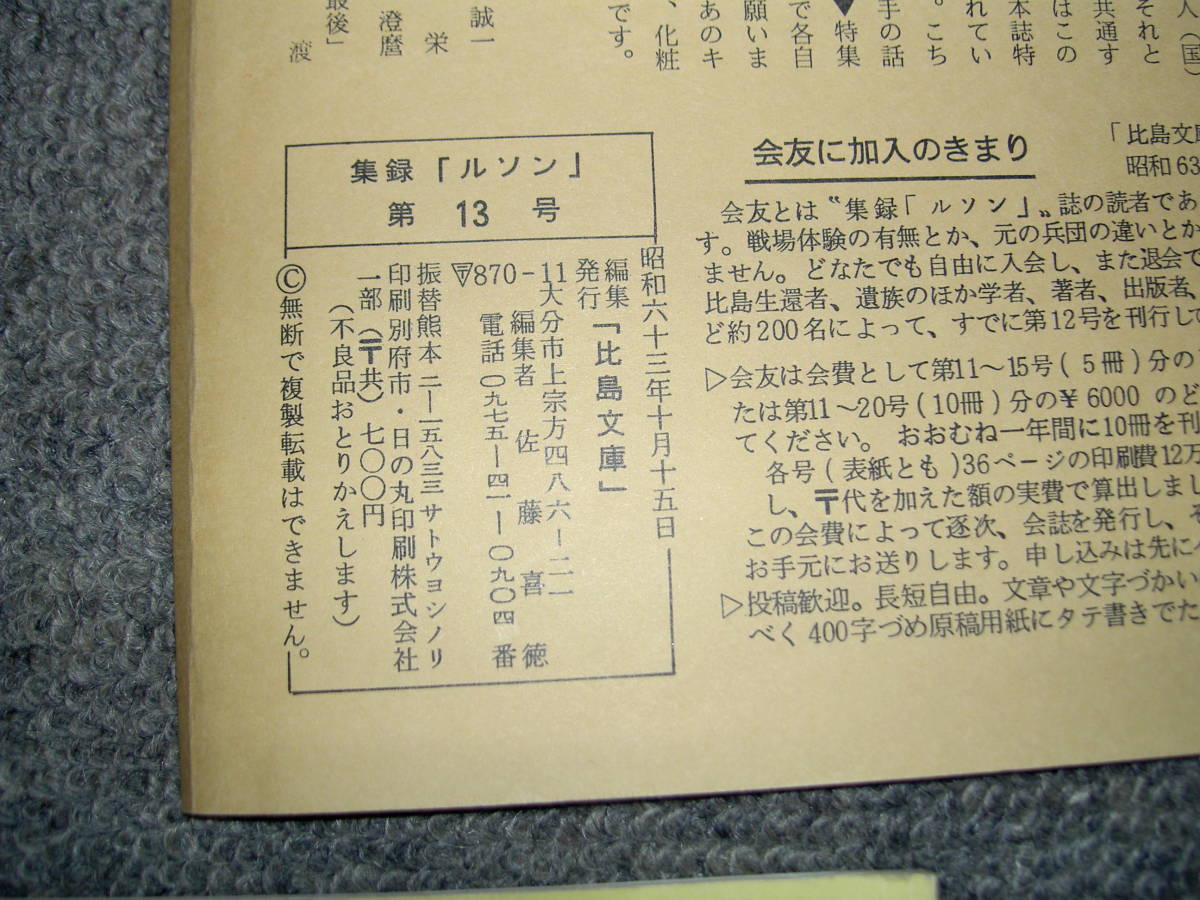 人（国）
それと
共通す
はこの
本誌特
れてい
。こち
手の話
▼特集
で各自
願いま
あのキ
、化粧
です。
誠一
栄
澄麿
最後」
渡
「比島文庫
昭和63
会友に加入のきまり
会友とは〝集録「ルソン」〟誌の読者であ
す。戦場体験の有無とか、元の兵団の違いとか
ません。どなたでも自由に入会し、また退会で
比島生還者、遺族のほか学者、著者、出版者、
ど約200名によって、すでに第12号を刊行して
▷会友は会費として第11～15号(5冊)分の
たは第11～20号(10冊)分の¥6000のど
てください。おおむね一年間に10冊を刊
各号(表紙とも)36ページの印刷費12万
し、〒代を加えた額の実費で算出しまし
この会費によって逐次、会誌を発行し、そ
お手元にお送りします。申し込みは先に
▷投稿歓迎。長短自由。文章や文字づかい
べく400字づめ原稿用紙にタテ書きでた
集録「ルソン」
第13号
昭和六十三年十月十五日
編集
発行「比島文庫」
〒870-11大分市上宗方四八六ー二一
編集者 佐藤喜徳
電話〇九七五ー四一ー〇九〇四番
振替熊本二ー一五八三三サトウヨシノリ
印刷別府市・日の丸印刷株式会社
一部(〒共)七〇〇円
(不良品おとりかえします)
©無断で複製転載はできません。